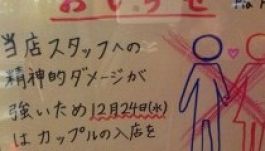 おしらせ
当店スタッフへの
精神的ダメージが
強いため12月24日(水)
はカップルの入店を